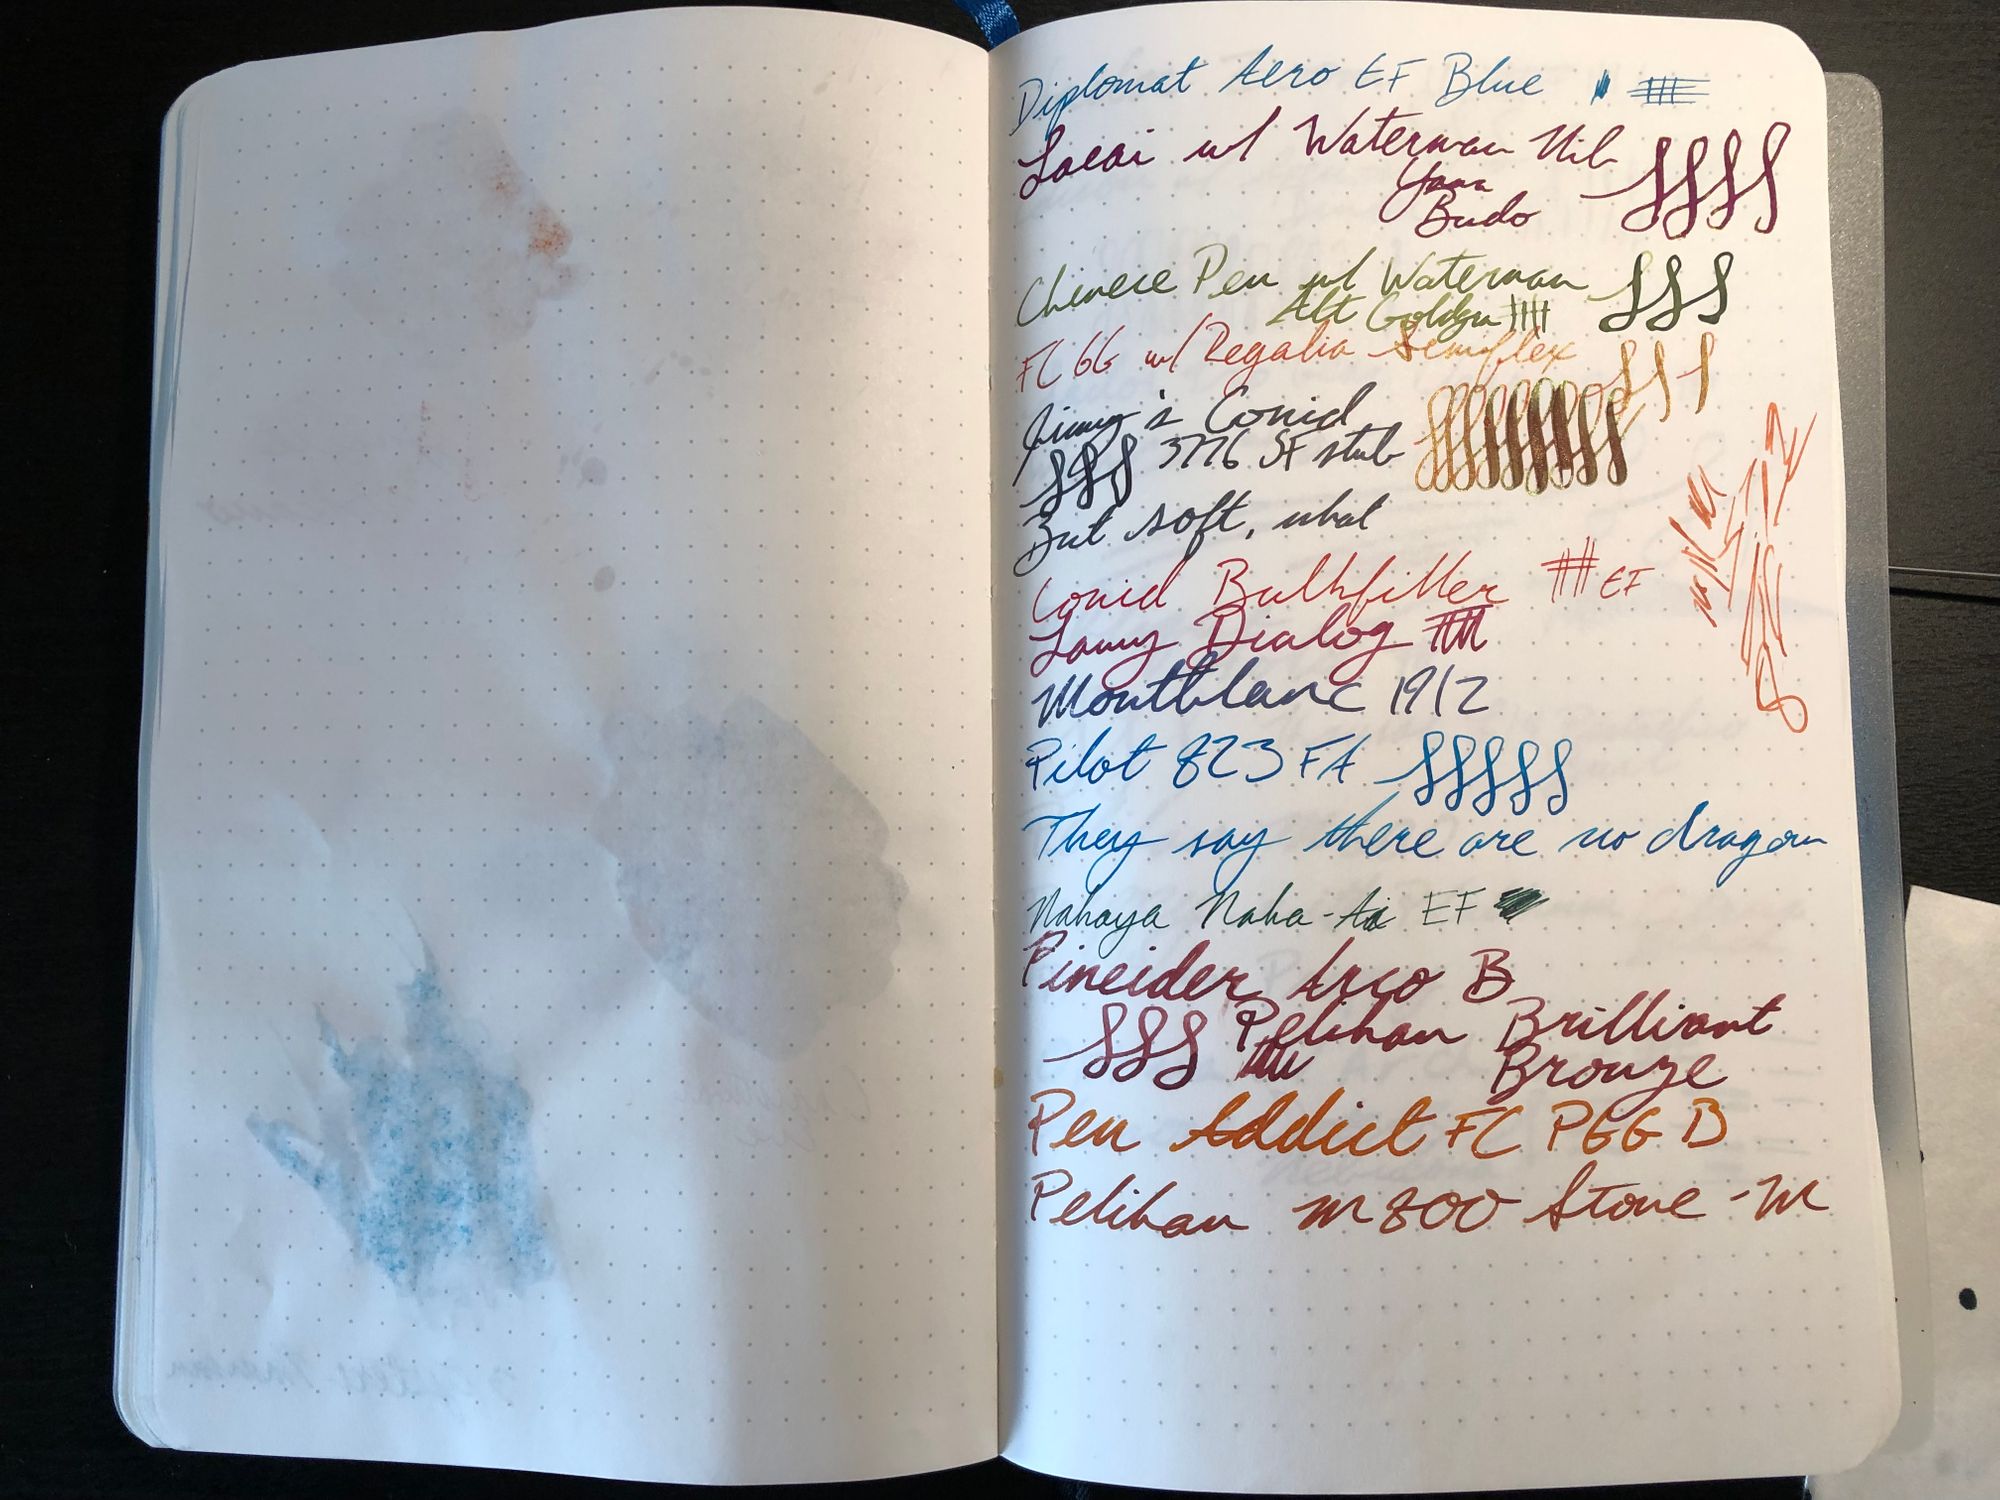 Diplomat Aero EF Blue
Locai w/ Waterman Nib
Yama
Budo
Chinese Pen w/ Waterman
Alt Goldgrün
FC 66 w/ Regalia Semiflex
Jimmy's Conid
3776 SF stub
But soft, what
Conid Bulkfiller EF
Lamy Dialog
Montblanc 1912
Pilot 823 FA
They say there are no dragons
Nakaya Naka-Ai EF
Pineider Arco B
Pelikan Brilliant
Bronze
Pen Addict FC P66 B
Pelikan M800 Stone - M